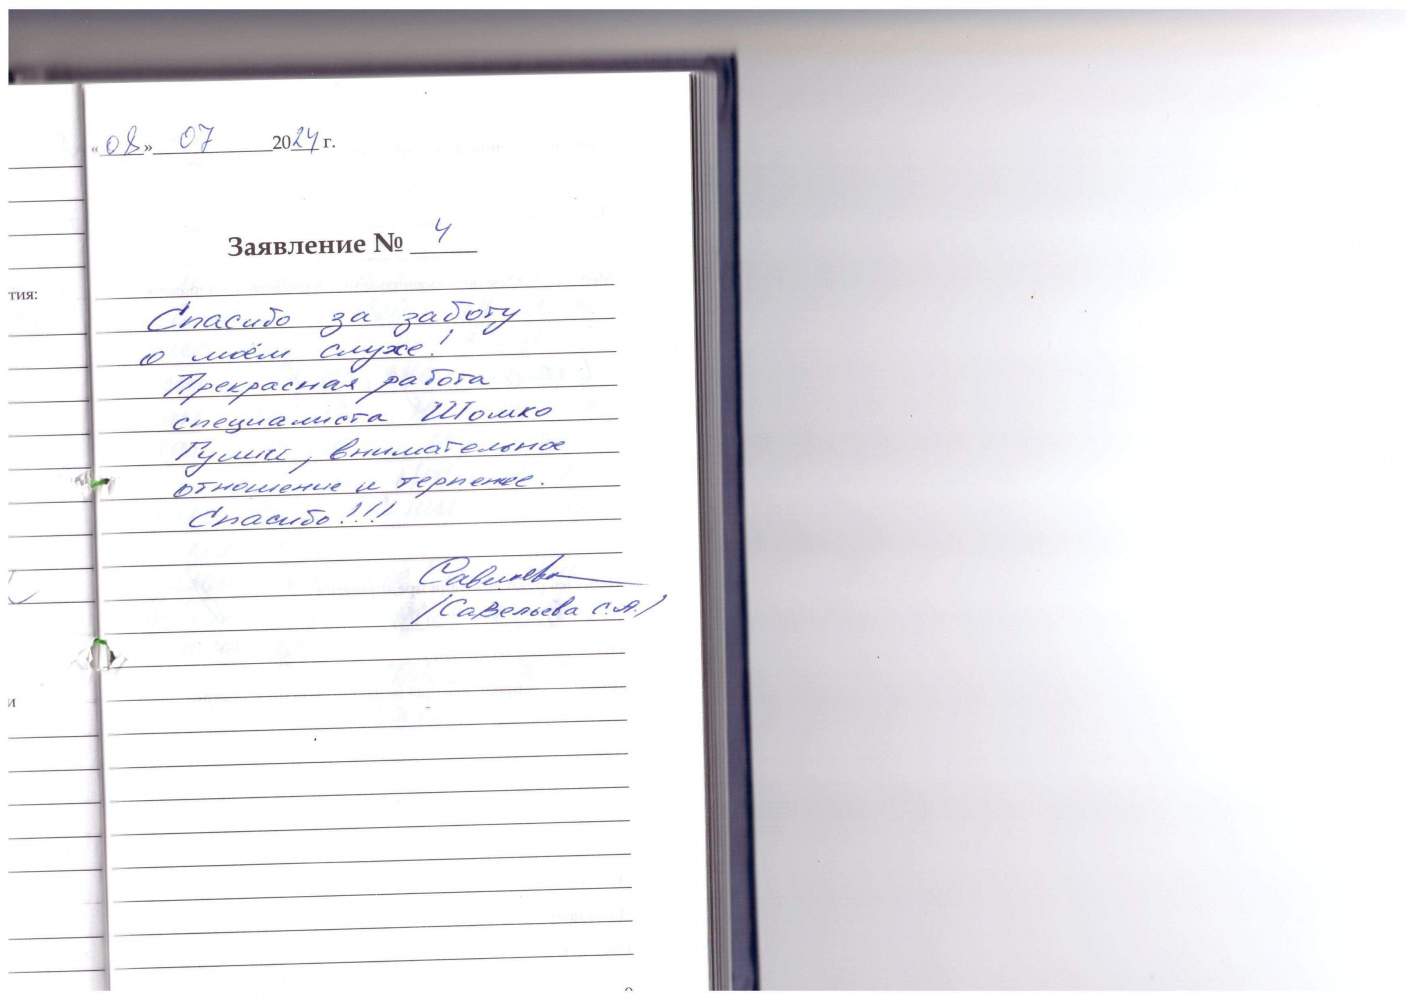 «08» 07 2024 г.
Заявление № 4
тия:
Спасибо за заботу
о моём слухе!
Прекрасная работа
специалиста Шомко
, внимательное
отношение и терпение.
Спасибо!!!
/Савельева С.А./
и